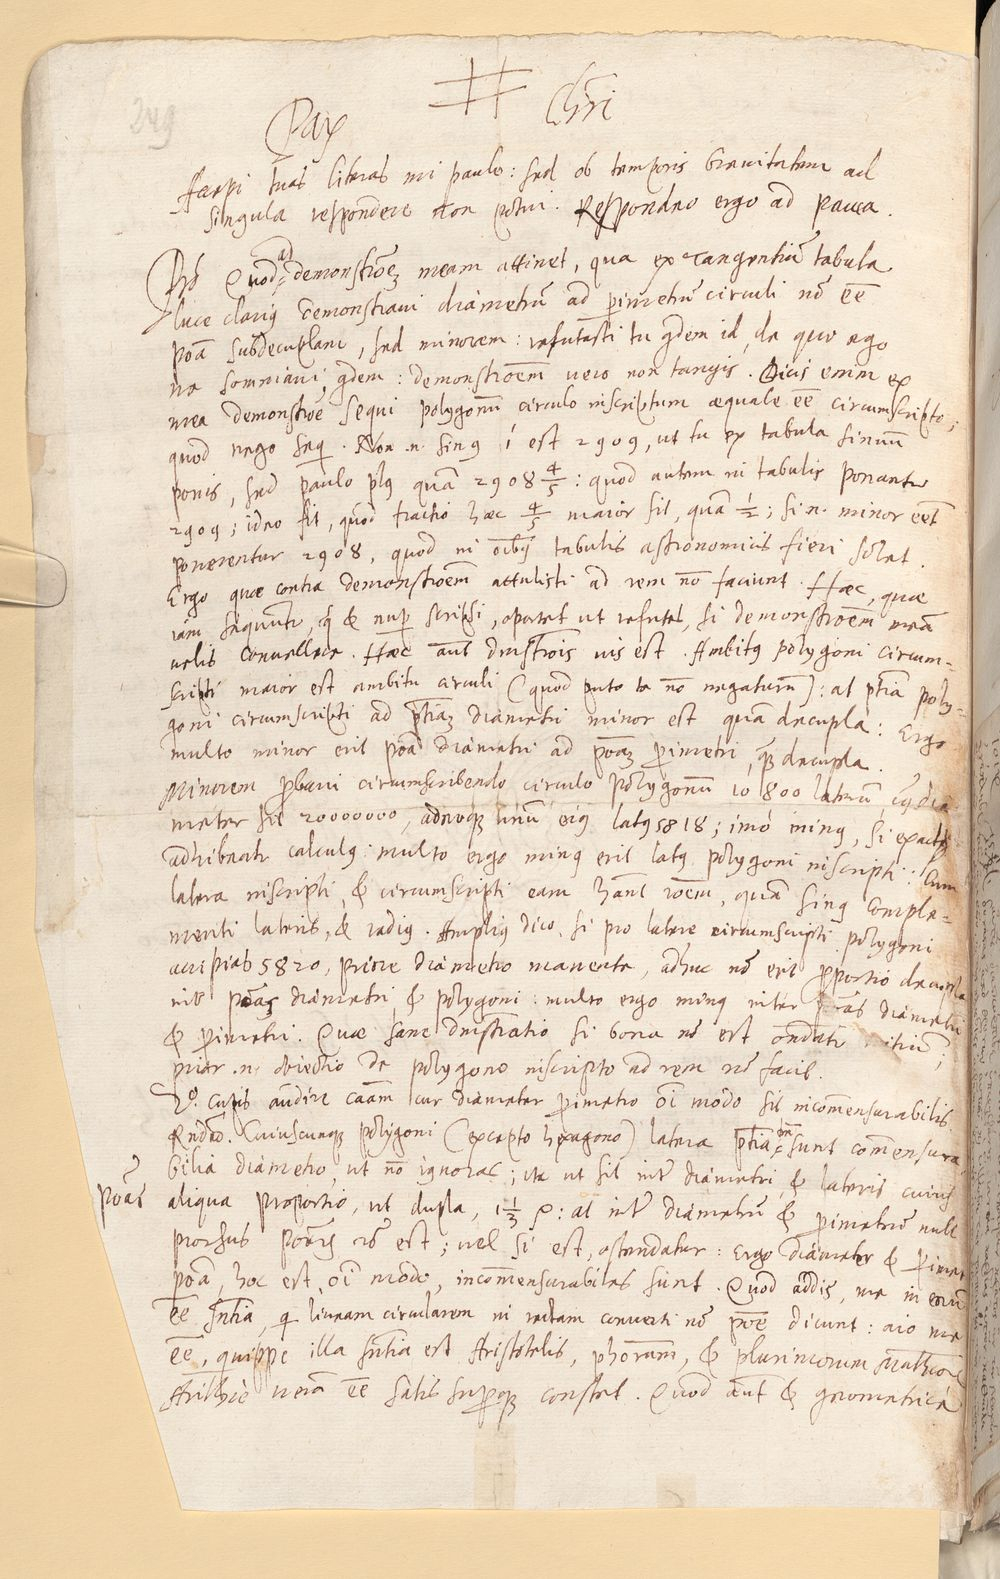 249
Pax Chri
Accepi tuas literas mi paule: sed ob temporis brevitatem ad
singula respondere non potui. Respondeo ergo ad pauca.
Quod ad demonstrōē meam attinet, qua ex Tangentiū tabula
luce clariꝰ demonstravi diametrū ad perimetrū circuli nō eē
poā subdecuplam, sed minorem: refutasti tu qdem id, de quo ego
ne somniavi qdem: demonstrōem vero non tangis. Dicis enim ex
mea demonstrōe sequi polygonū circulo inscriptum æquale eē circumscripto;
quod nego seq. Non .n. sinꝰ 1 est 2909, ut tu ex tabula sinuum
ponis, sed paulo plꝰ quā 2908 4/5: quod autem in tabulis ponantur
2909; ideo fit, quod fractio hæc 4/5 maior sit, quā 1/2; si .n. minor eēt
ponerentur 2908, quod in oībꝰ tabulis astronomicis fieri solet.
Ergo quæ contra demonstrōem attulisti ad rem nō faciunt. Hæc, quæ
iam sequunt, q̄ & nuper scripsi, oportet ut refutes, si demonstrōem meā
velis convellere. Hæc aut dmstrōis vis est. Ambitꝰ polygoni circum=
scripti maior est ambitu circuli (quod puto te nō negaturū): at pōtia poly=
goni circumscripti ad pōtiaꝫ diametri minor est quā decupla: Ergo
multo minor erit poā diametri ad poāꝫ perimetri, qꝫ decupla.
Minorem probavi circumscribendo circulo polygonū 10800 laterū cuꝰ dia
meter sit 20000000, adeoqꝫ unū eiꝰ latꝰ 5818; imo minꝰ, si exactꝰ
adhibeatr calculꝰ: multo ergo minꝰ erit latꝰ polygoni inscripti: Cum
latera inscripti, & circumscripti eam hānt rōem, quā sinꝰ comple=
menti lateris, & radiꝰ. Ampliꝰ dico, si pro latere circumscripti polygoni
accipias 5820, priore diametro manente, adhuc nō erit proportio decupla
inter poāꝫ diametri, & polygoni: multo ergo minꝰ inter poās diametri
& perimetri. Quæ sane dmstratio si bona nō est ondatr vitiū;
prior .n. obiectio de polygono inscripto ad rem nō facit.
2º. cupis audire caām cur diameter perimetro oī modo sit incommensurabilis.
Rndeo. Cuiuscunqꝫ polygoni (excepto hexagono) latera pōtia sunt comensura
bilia diametro, ut nō ignoras; ita ut sit intr diametri, & lateris cuiusꝰ
poās
aliqua proportio, ut dupla, 1 1/3: at intr diametrū & perimetrū null
prorsus poāꝫ rō est; vel si est, ostendatur: Ergo diameter & perimet
poā, hoc est, oī modo, incomensurabiles sunt. Quod addis, me in eorū
eē sntia, qui lineam circularem in rectam converti nō poē dicunt: aio me
eē, quippe illa sntia est Aristotelis, & plurimorum
Arithcē verā eē satis superqꝫ constat. Quod aut & geometricā